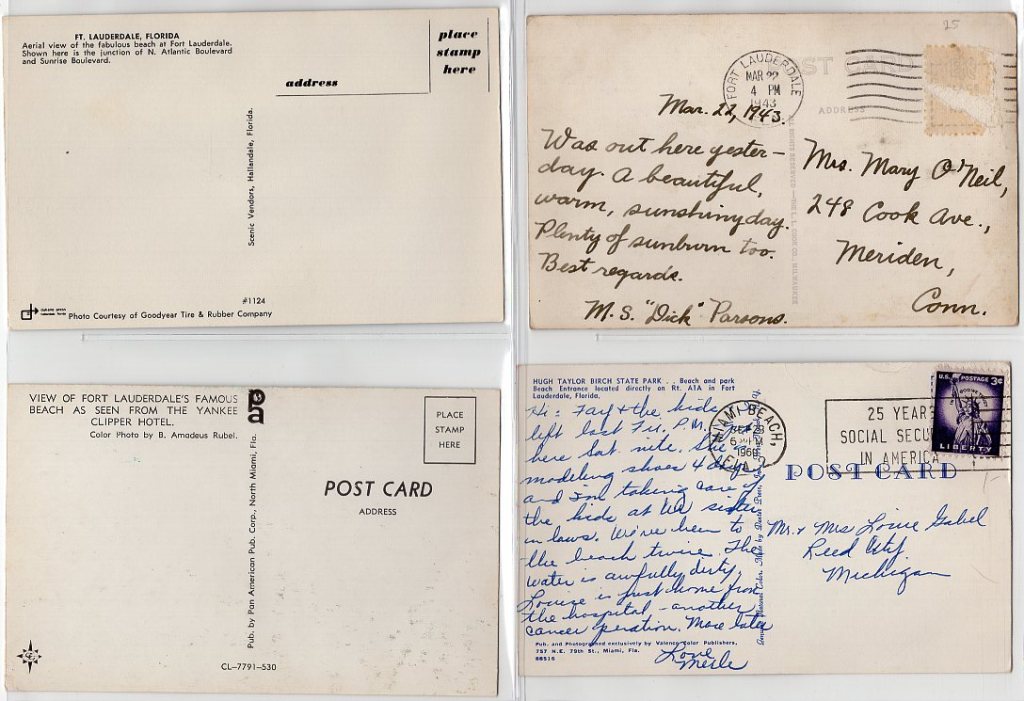 FT. LAUDERDALE, FLORIDA
Aerial view of the fabulous beach at Fort Lauderdale.
Shown here is the junction of N. Atlantic Boulevard
and Sunrise Boulevard.
place
stamp
here
address
Scenic Vendors, Hallandale, Florida.
#1124
Photo Courtesy of Goodyear Tire & Rubber Company
25
POST CARD
FORT LAUDERDALE
MAR 22
4 PM
1943
ADDRESS
Mar. 22, 1943.
Was out here yester-
day. A beautiful,
warm, sunshiny day.
Plenty of sunburn too.
Best regards.
M.S. "Dick" Parsons.
Mrs. Mary O'Neil,
248 Cook Ave.,
Meriden,
Conn.
ALL RIGHTS RESERVED—THE L. L. COOK CO., MILWAUKEE
VIEW OF FORT LAUDERDALE'S FAMOUS
BEACH AS SEEN FROM THE YANKEE
CLIPPER HOTEL.
Color Photo by B. Amadeus Rubel.
PLACE
STAMP
HERE
POST CARD
ADDRESS
Pub. by Pan American Pub. Corp., North Miami, Fla.
CL-7791-530
HUGH TAYLOR BIRCH STATE PARK . . Beach and park
Beach Entrance located directly on Rt. A1A in Fort
Lauderdale, Florida.
Hi: Fay & the kids
left last Fri. P.M.
here Sat. nite. She's
modeling shoes 4 days
and I'm taking care of
the kids at her sister
in laws. We've been to
the beach twice. The
water is awfully dirty.
Louise is just home from
the hospital - another
cancer operation. More later
Love
Merle
Pub. and Photographed exclusively by Valence Color Publishers,
757 N.E. 79th St., Miami, Fla.
66515
MIAMI BEACH,
6 PM
1960
FLA.
25 YEARS
SOCIAL SECU
IN AMERICA
U.S. POSTAGE 3¢
LIBERTY
POST CARD
Mr. & Mrs Louie Gabel
Reed City.
Michigan